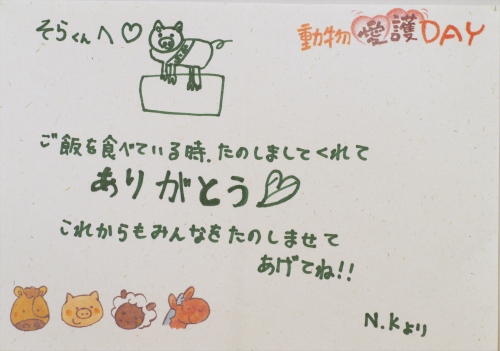 そらくんへ♡
動物愛護DAY
ご飯を食べている時、たのしましてくれて
ありがとう
これからもみんなをたのしませて
あげてね!!
N.Kより